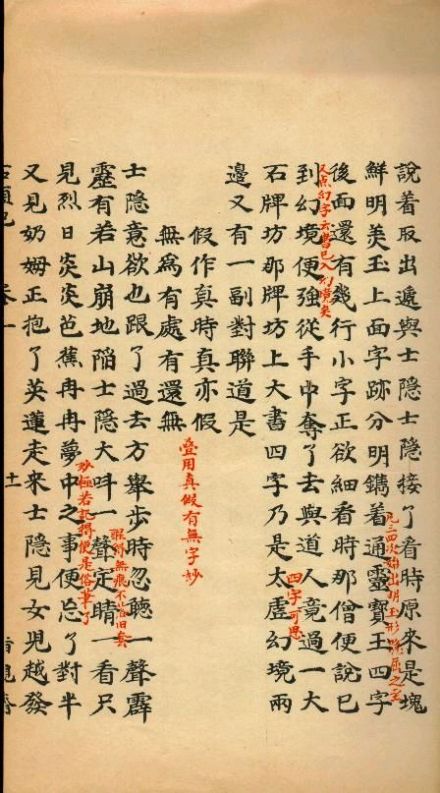 說着取出遞與士隱士隱接了看時原來是塊
鮮明美玉上面字跡分明鐫着通靈寶玉四字
凡三四次始出明玉形隱屈之至
後面還有幾行小字正欲細看時那僧便說已
又點幻字云書已入幻境矣
到幻境便強從手中奪了去與道人竟過一大
四字可思
石牌坊那牌坊上大書四字乃是太虛幻境兩
邊又有一副對聯道是
假作真時真亦假
無爲有處有還無
疊用真假有無字妙
士隱意欲也跟了過去方舉步時忽聽一聲霹
靂有若山崩地陷士隱大呌一聲定睛一看只
醒得無痕不落旧套
見烈日炎炎芭蕉冉冉夢中之事便忘了對半
妙極若記得便是俗筆了
又見奶姆正抱了英蓮走來士隱見女兒越發